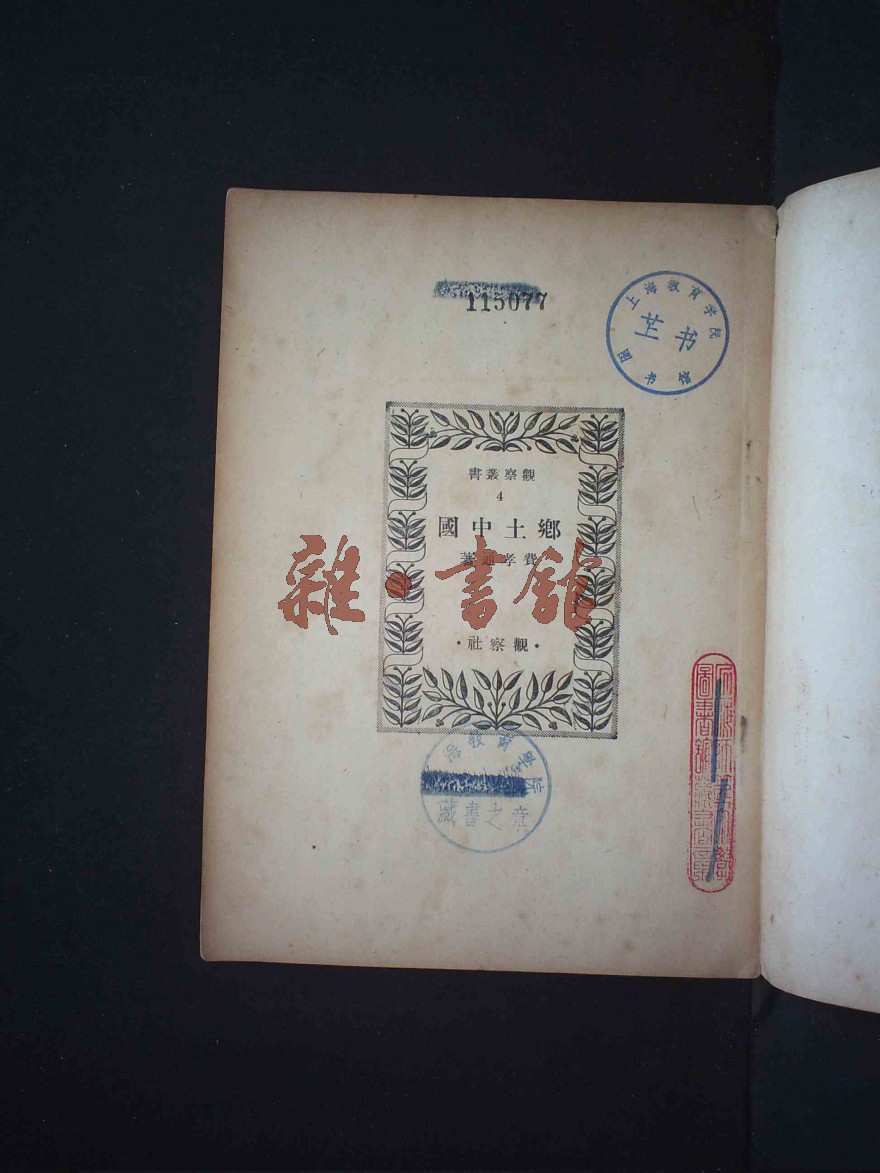 115077
上海教育学院
芷书
图书馆
觀察叢書
4
鄉土中國
費孝通著
雜·書館
·觀察社·
教育學院
藏書之章
圖書館藏書章